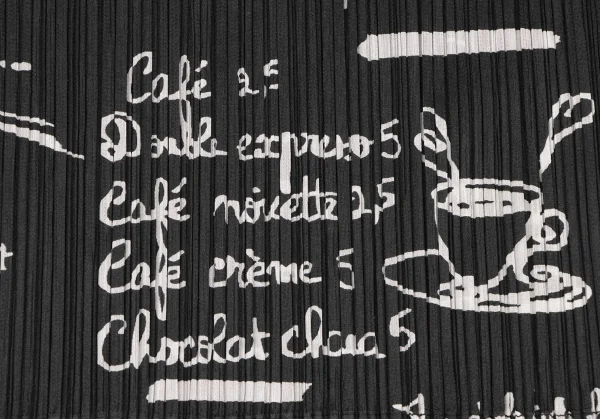 Café 2,5
Double expresso 5
Café noisette 2,5
Café crème 5
Chocolat chaud 5